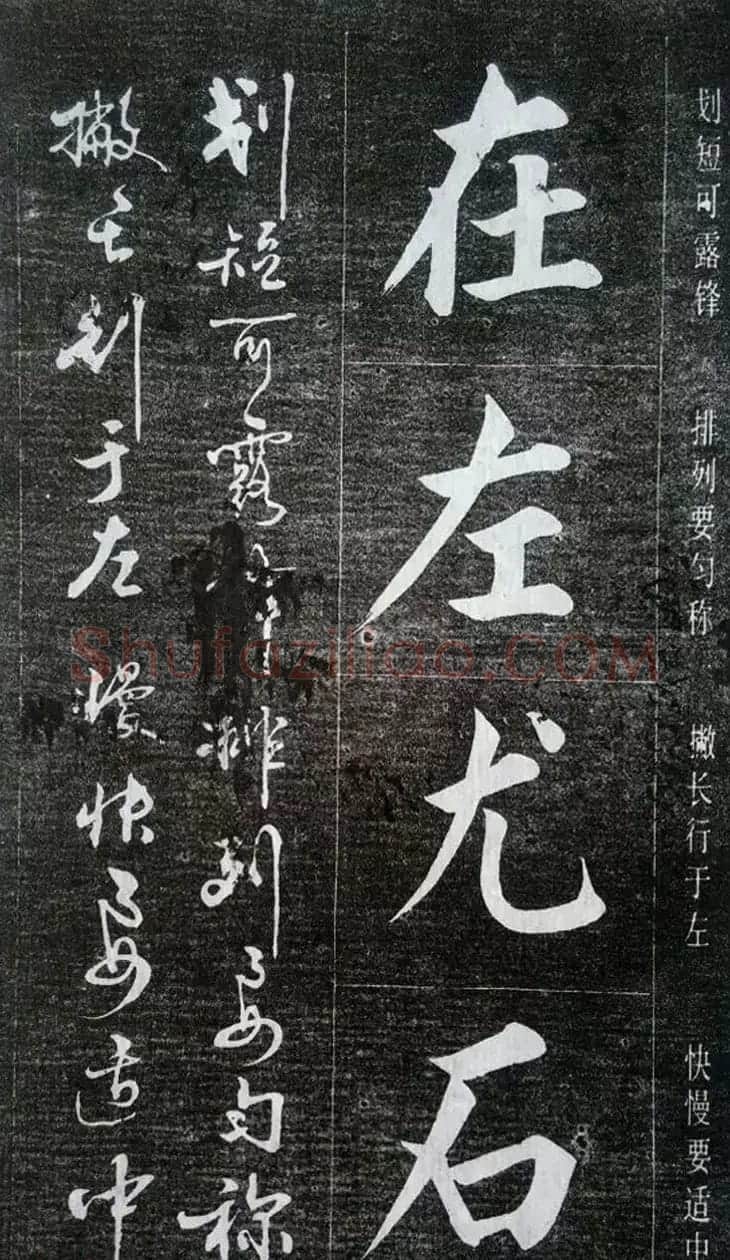 划短可露锋 排列要匀称 撇长行于左 快慢要适中
在左尤石
划短可露锋排列要匀称
撇长于左慢快要适中
Shufaziliao.COM